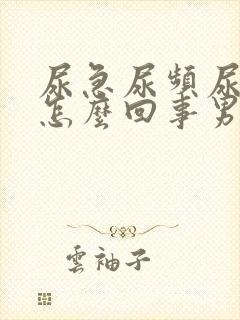 尿急尿頻尿
怎麼回事男
雲袖子